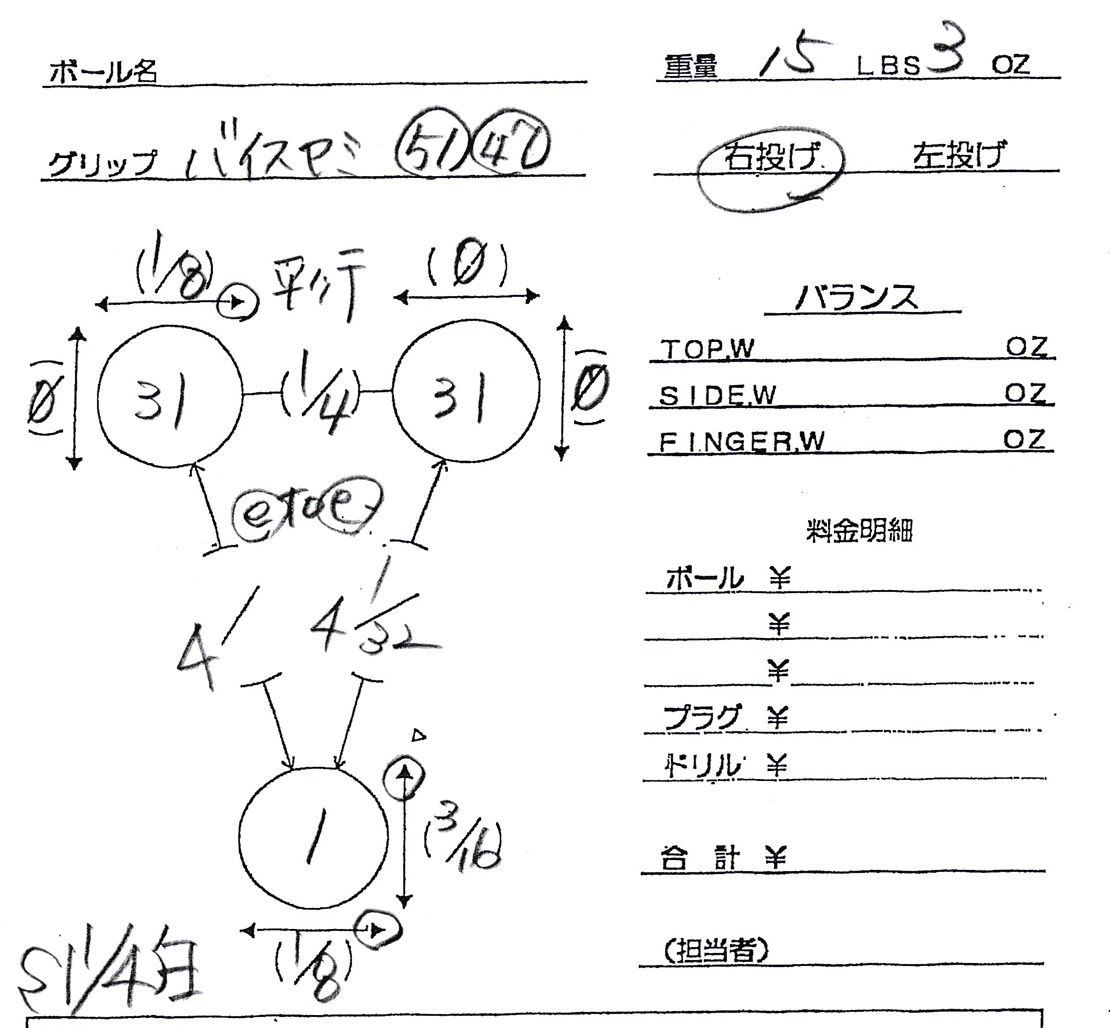 ボール名
重量 15 LBS 3 OZ
グリップ バイスセミ 51 47
右投げ 左投げ
(1/8) 平行 (Ø)
(Ø) 31 (1/4) 31 (Ø)
バランス
TOP.W OZ
SIDE.W OZ
FINGER.W OZ
e to e
料金明細
ボール ¥
¥
¥
プラグ ¥
ドリル ¥
4 / 4 1/32
1 (3/16)
(1/8)
合計 ¥
(担当者)
S1 1/4